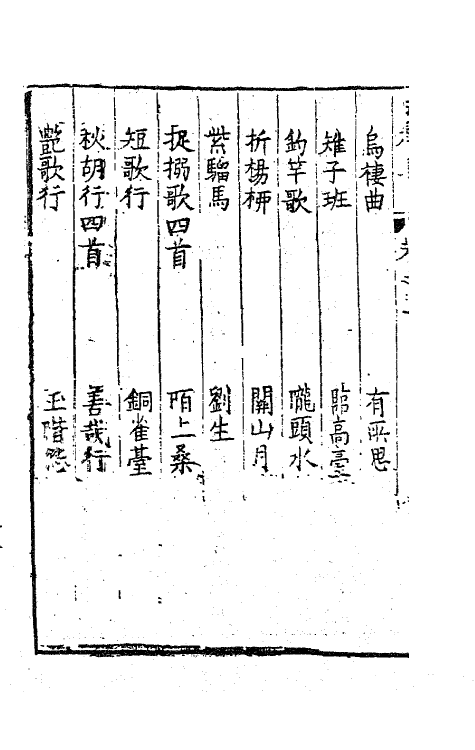 烏棲曲　有所思
雉子班　臨高臺
釣竿歌　隴頭水
折楊柳　關山月
紫騮馬　劉生
捉搦歌四首　陌上桑
短歌行　銅雀臺
秋胡行四首　善哉行
艷歌行　玉階怨